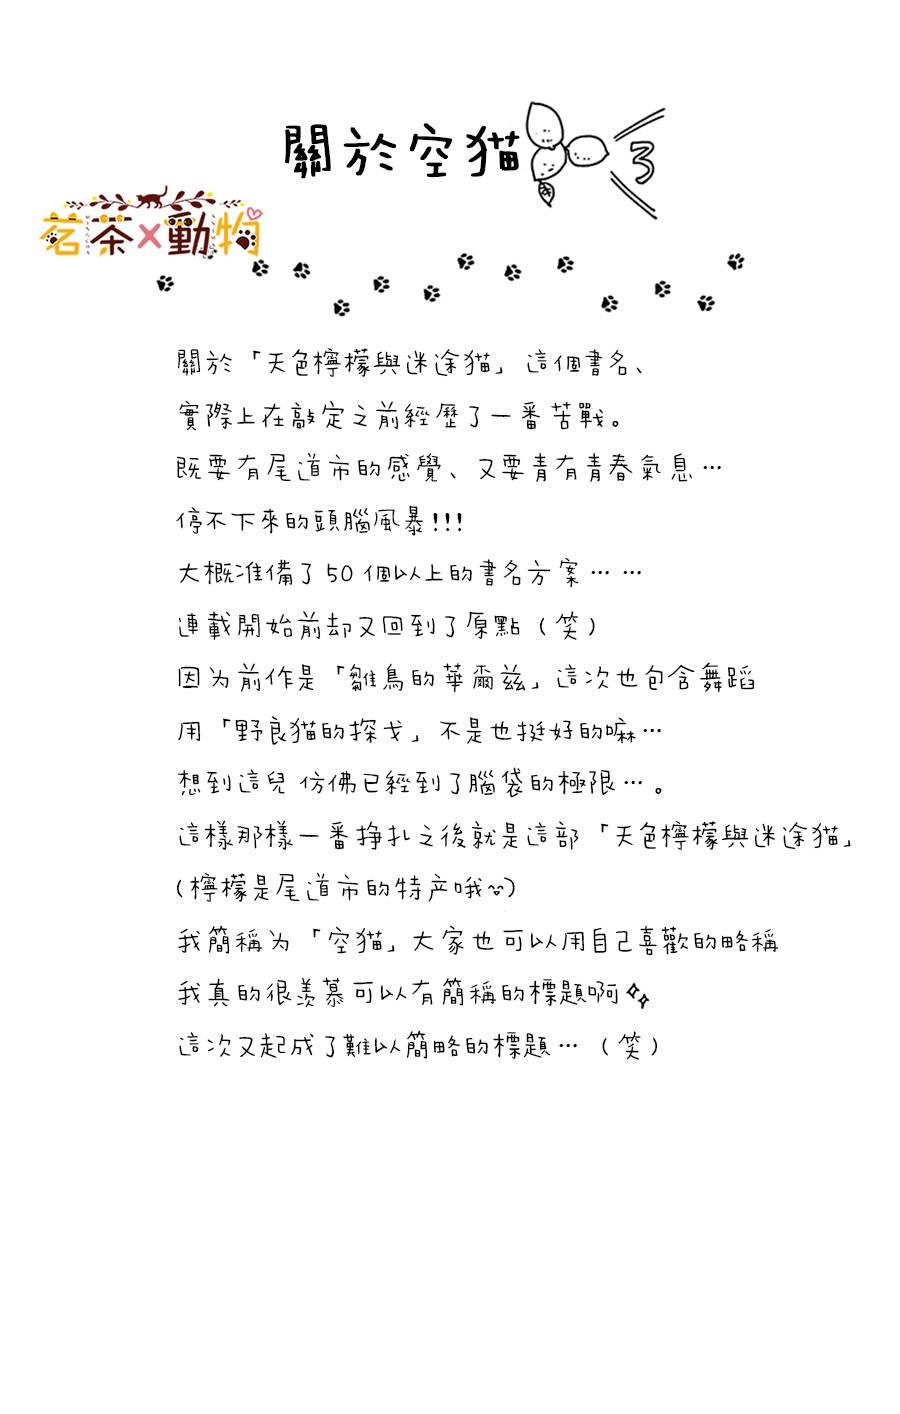 關於空猫
3
茗茶×動物
關於「天色檸檬與迷途猫」這個書名、
實際上在敲定之前經歷了一番苦戰。
既要有尾道市的感覺、又要青有青春氣息…
停不下來的頭腦風暴!!!
大概准備了50個以上的書名方案……
連載開始前却又回到了原點(笑)
因为前作是「雛鳥的華爾兹」這次也包含舞蹈
用「野良猫的探戈」不是也挺好的嘛…
想到這兒 仿佛已經到了腦袋的極限…。
這樣那樣一番挣扎之後就是這部「天色檸檬與迷途猫」
(檸檬是尾道市的特产哦~)
我簡稱为「空猫」大家也可以用自己喜歡的略稱
我真的很羡慕可以有簡稱的標題啊
這次又起成了難以簡略的標題…(笑)